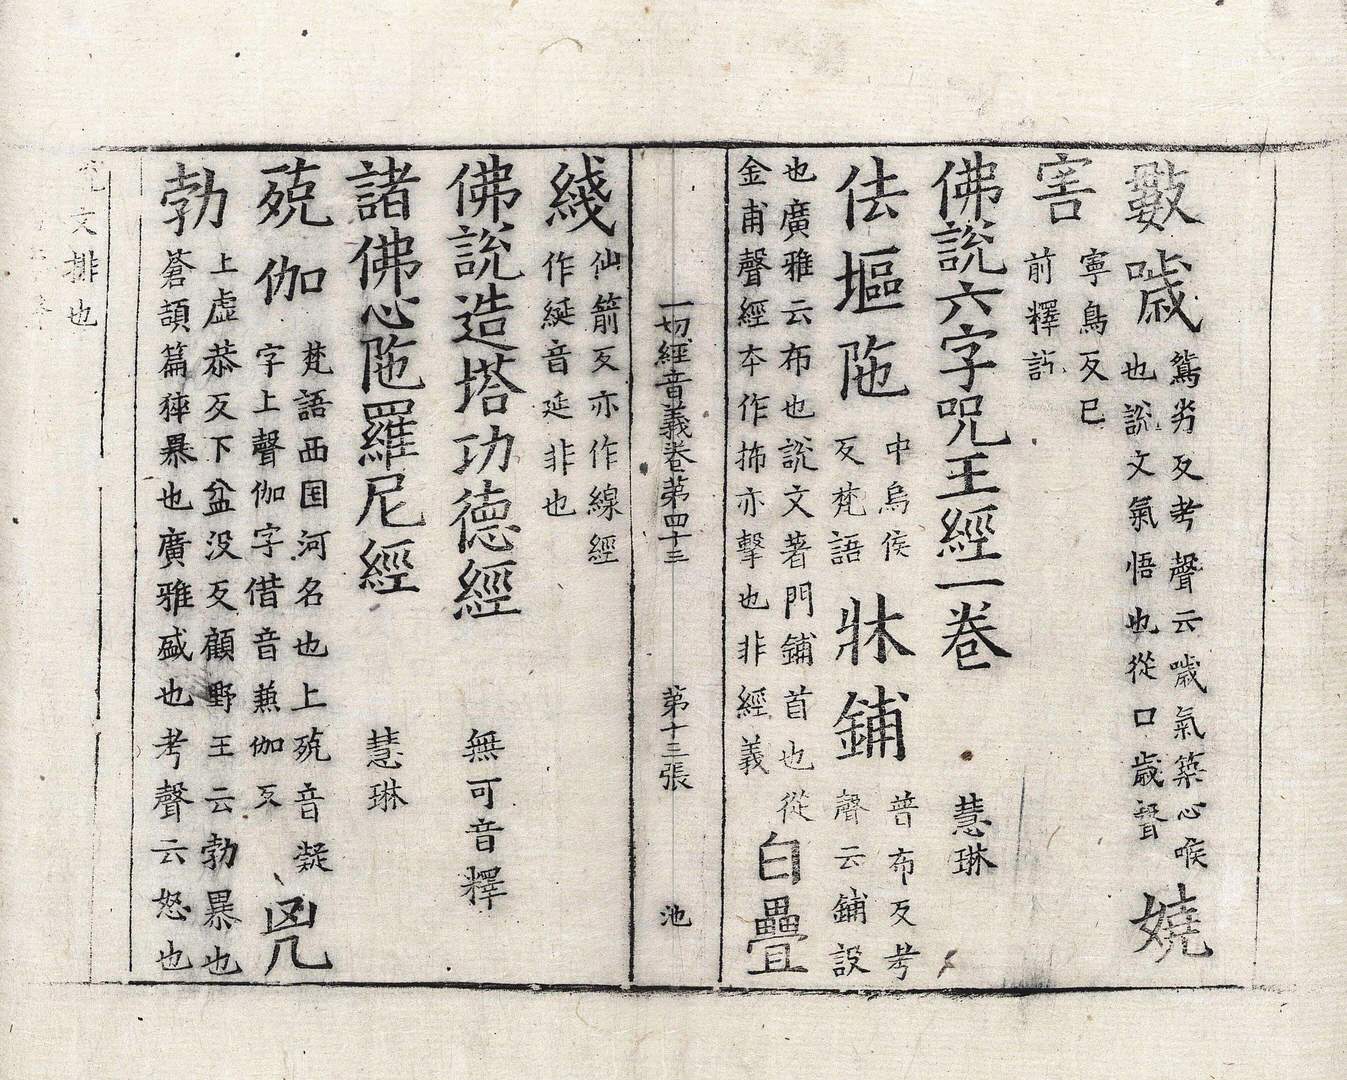 數噦
鴽劣反考聲云噦氣築心喉
也說文氣悟也從口歲聲
嬈
害
寧鳥反已
前釋訖
佛說六字呪王經一卷
慧琳
佉塸陁
中烏侯
反梵語
牀鋪
普布反考
聲云鋪設
也廣雅云布也說文著門鋪首也從
金甫聲經本作抪亦擊也非經義
白疊
一切經音義卷第四十三
第十三張
池
綫
仙箭反亦作線經
作綖音延非也
佛說造塔功德經
無可音釋
諸佛心陁羅尼經
慧琳
殑伽
梵語西国河名也上殑音凝
字上聲伽字借音兼伽反
兇
上虛恭反下盆没反顧野王云勃暴也
勃
蒼頡篇猝暴也廣雅盛也考聲云怒也
文排也